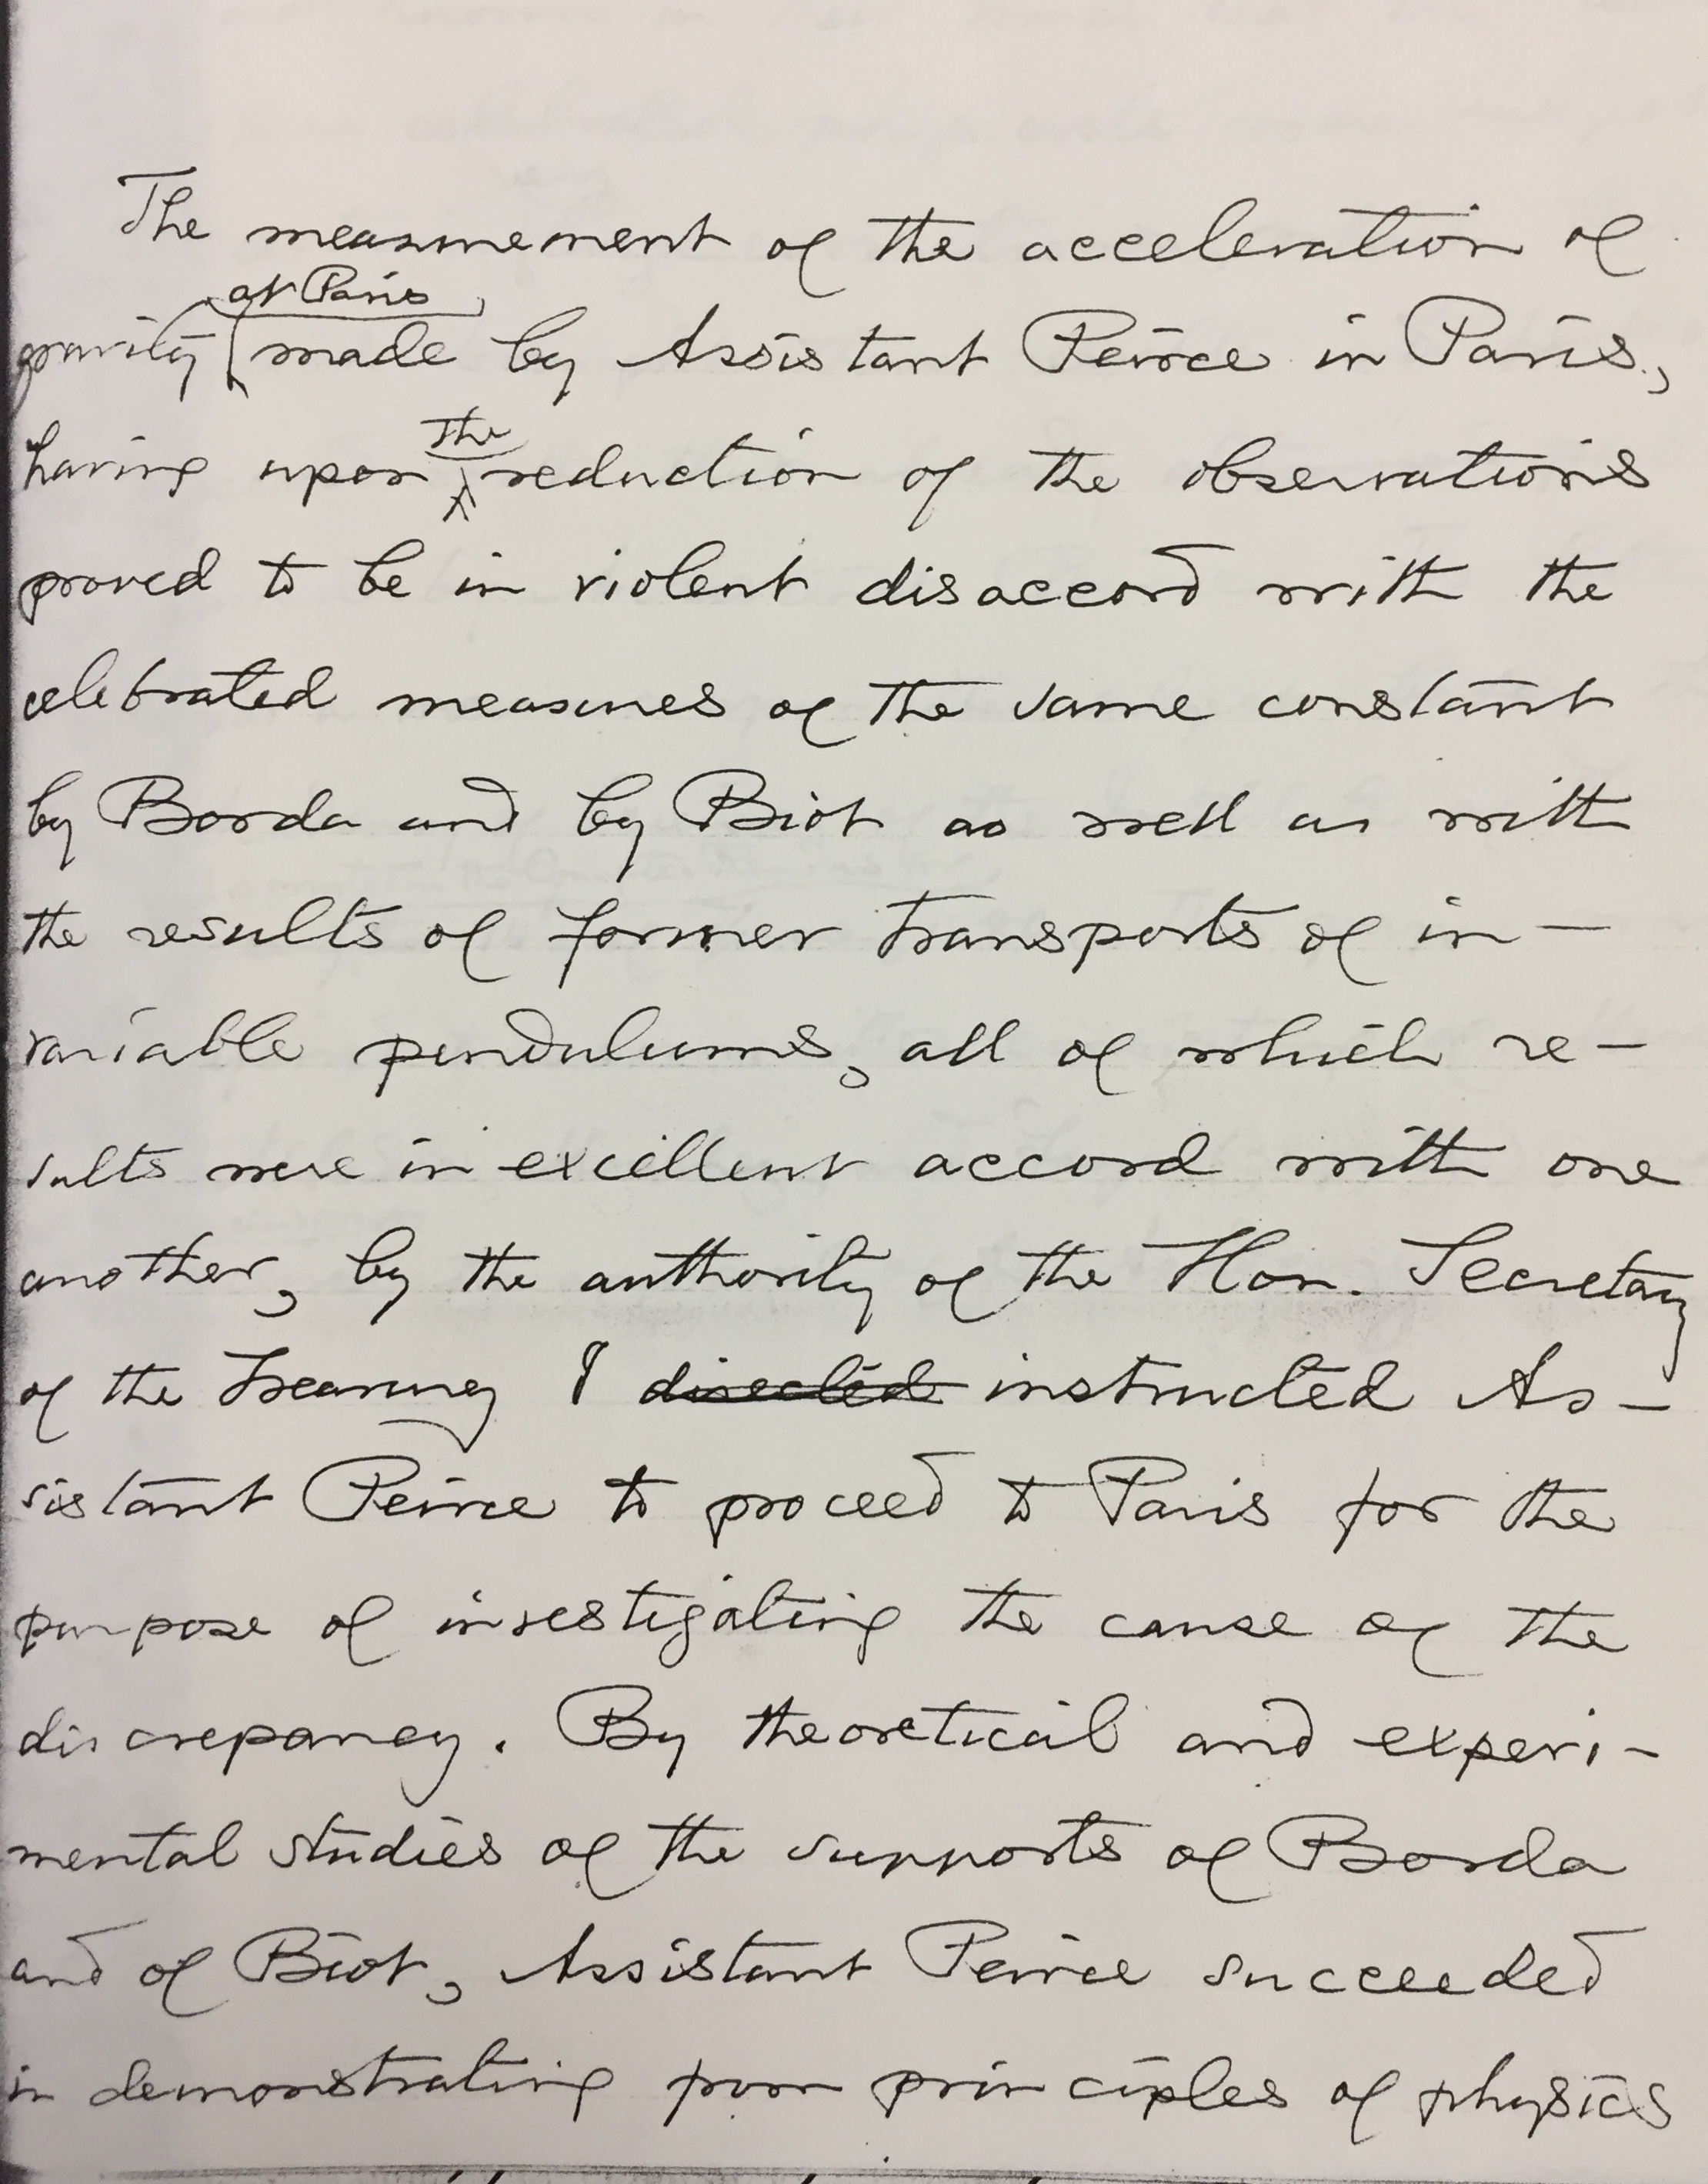 The measurement of the acceleration of
at Paris
gravity made by Assistant Peirce in Paris,
the
having upon reduction of the observations
proved to be in violent disaccord with the
celebrated measures of the same constant
by Borda and by Biot as well as with
the results of former transports of in-
variable pendulums, all of which re-
sults were in excellent accord with one
another, by the authority of the Hon. Secretary
of the Treasury I directed instructed As-
sistant Peirce to proceed to Paris for the
purpose of investigating the cause of the
discrepancy. By theoretical and experi-
mental studies of the supports of Borda
and of Biot, Assistant Peirce succeeded
in demonstrating from principles of physics